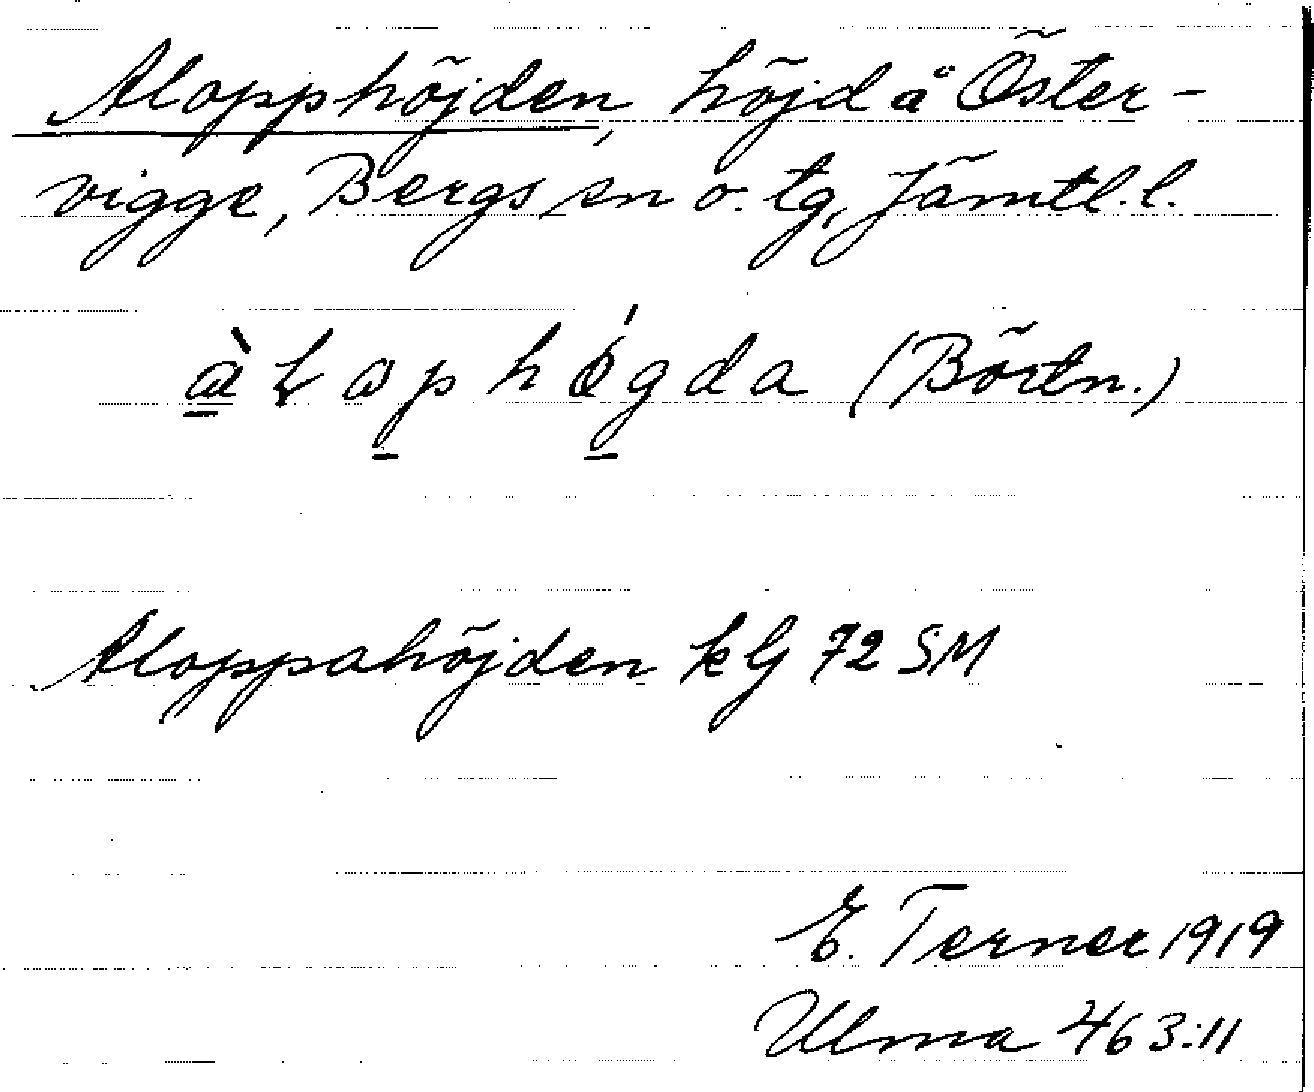 Alopphöjden, höjd å Öster-
vigge, Bergs sn o. tg, Jämtl. l.
àłophǿgda (Börtn.)
Aloppahöjden klG 72 SM
E. Terner 1919
Ulma 463:11